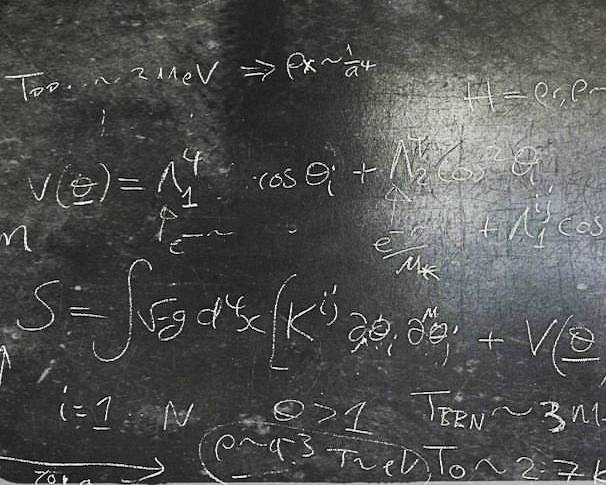 T_DD.. ~ 2 MeV ⇒ ρx ~ 1/a⁴
H = ρr, ρm
V(θ) = Λ₁⁴ cos θi + Λ₂⁴ cos² θi
e⁻ ~ e⁻/M* + Λ₁^ij cos
S = ∫ √-g d⁴x [ K^ij ∂μθi ∂^μθj + V(θ
i=1 N θ>1 T_BBN ~ 3 M
ρ~a⁻³ T~eV T₀ ~ 2.7 K